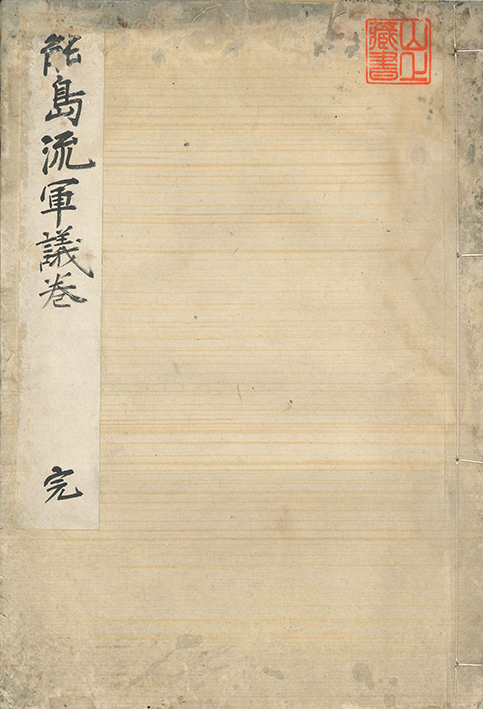 能島流軍議巻
完
山上
蔵書